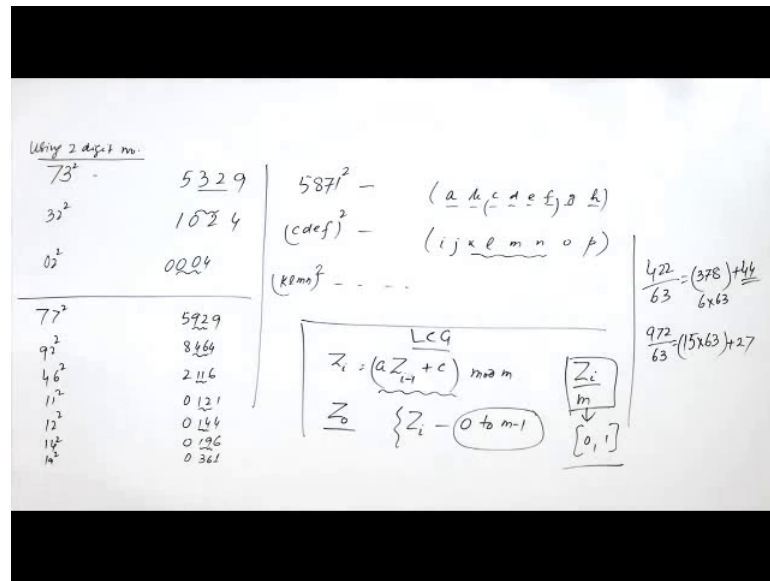 Using 2 digit no.
73² - 5329
32² 1024
02² 0004
77² 5929
92² 8464
46² 2116
11² 0121
12² 0144
14² 0196
19² 0361
5871² - (a b (c d e f) g h)
(cdef)² - (i j k l m n o p)
(klmn)² - - - -
LCG
Zᵢ = (aZᵢ₋₁ + c) mod m
Z₀ {Zᵢ - 0 to m-1
Zᵢ
m
↓
[0, 1]
422/63 = (378) + 44
6x63
972/63 = (15x63) + 27